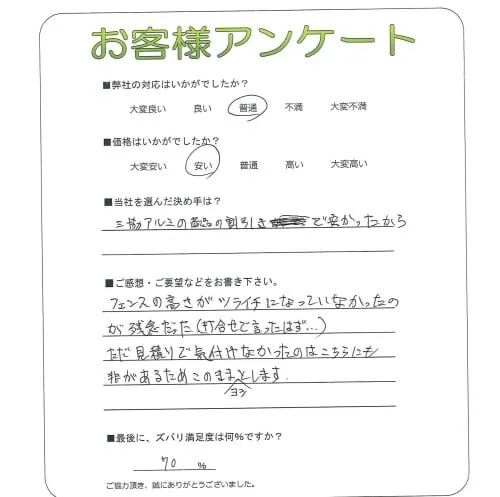 お客様アンケート
■弊社の対応はいかがでしたか?
大変良い 良い 普通 不満 大変不満
■価格はいかがでしたか?
大変安い 安い 普通 高い 大変高い
■当社を選んだ決め手は?
三協アルミの商品の割引きで安かったから
■ご感想・ご要望などをお書き下さい。
フェンスの高さがツライチになっていなかったの
が残念だった(打合せで言ったはず…)
ただ見積りで気付けなかったのはこちらにも
非があるためこのままヨシとします.
■最後に、ズバリ満足度は何%ですか?
70 %
ご協力頂き、誠にありがとうございました。